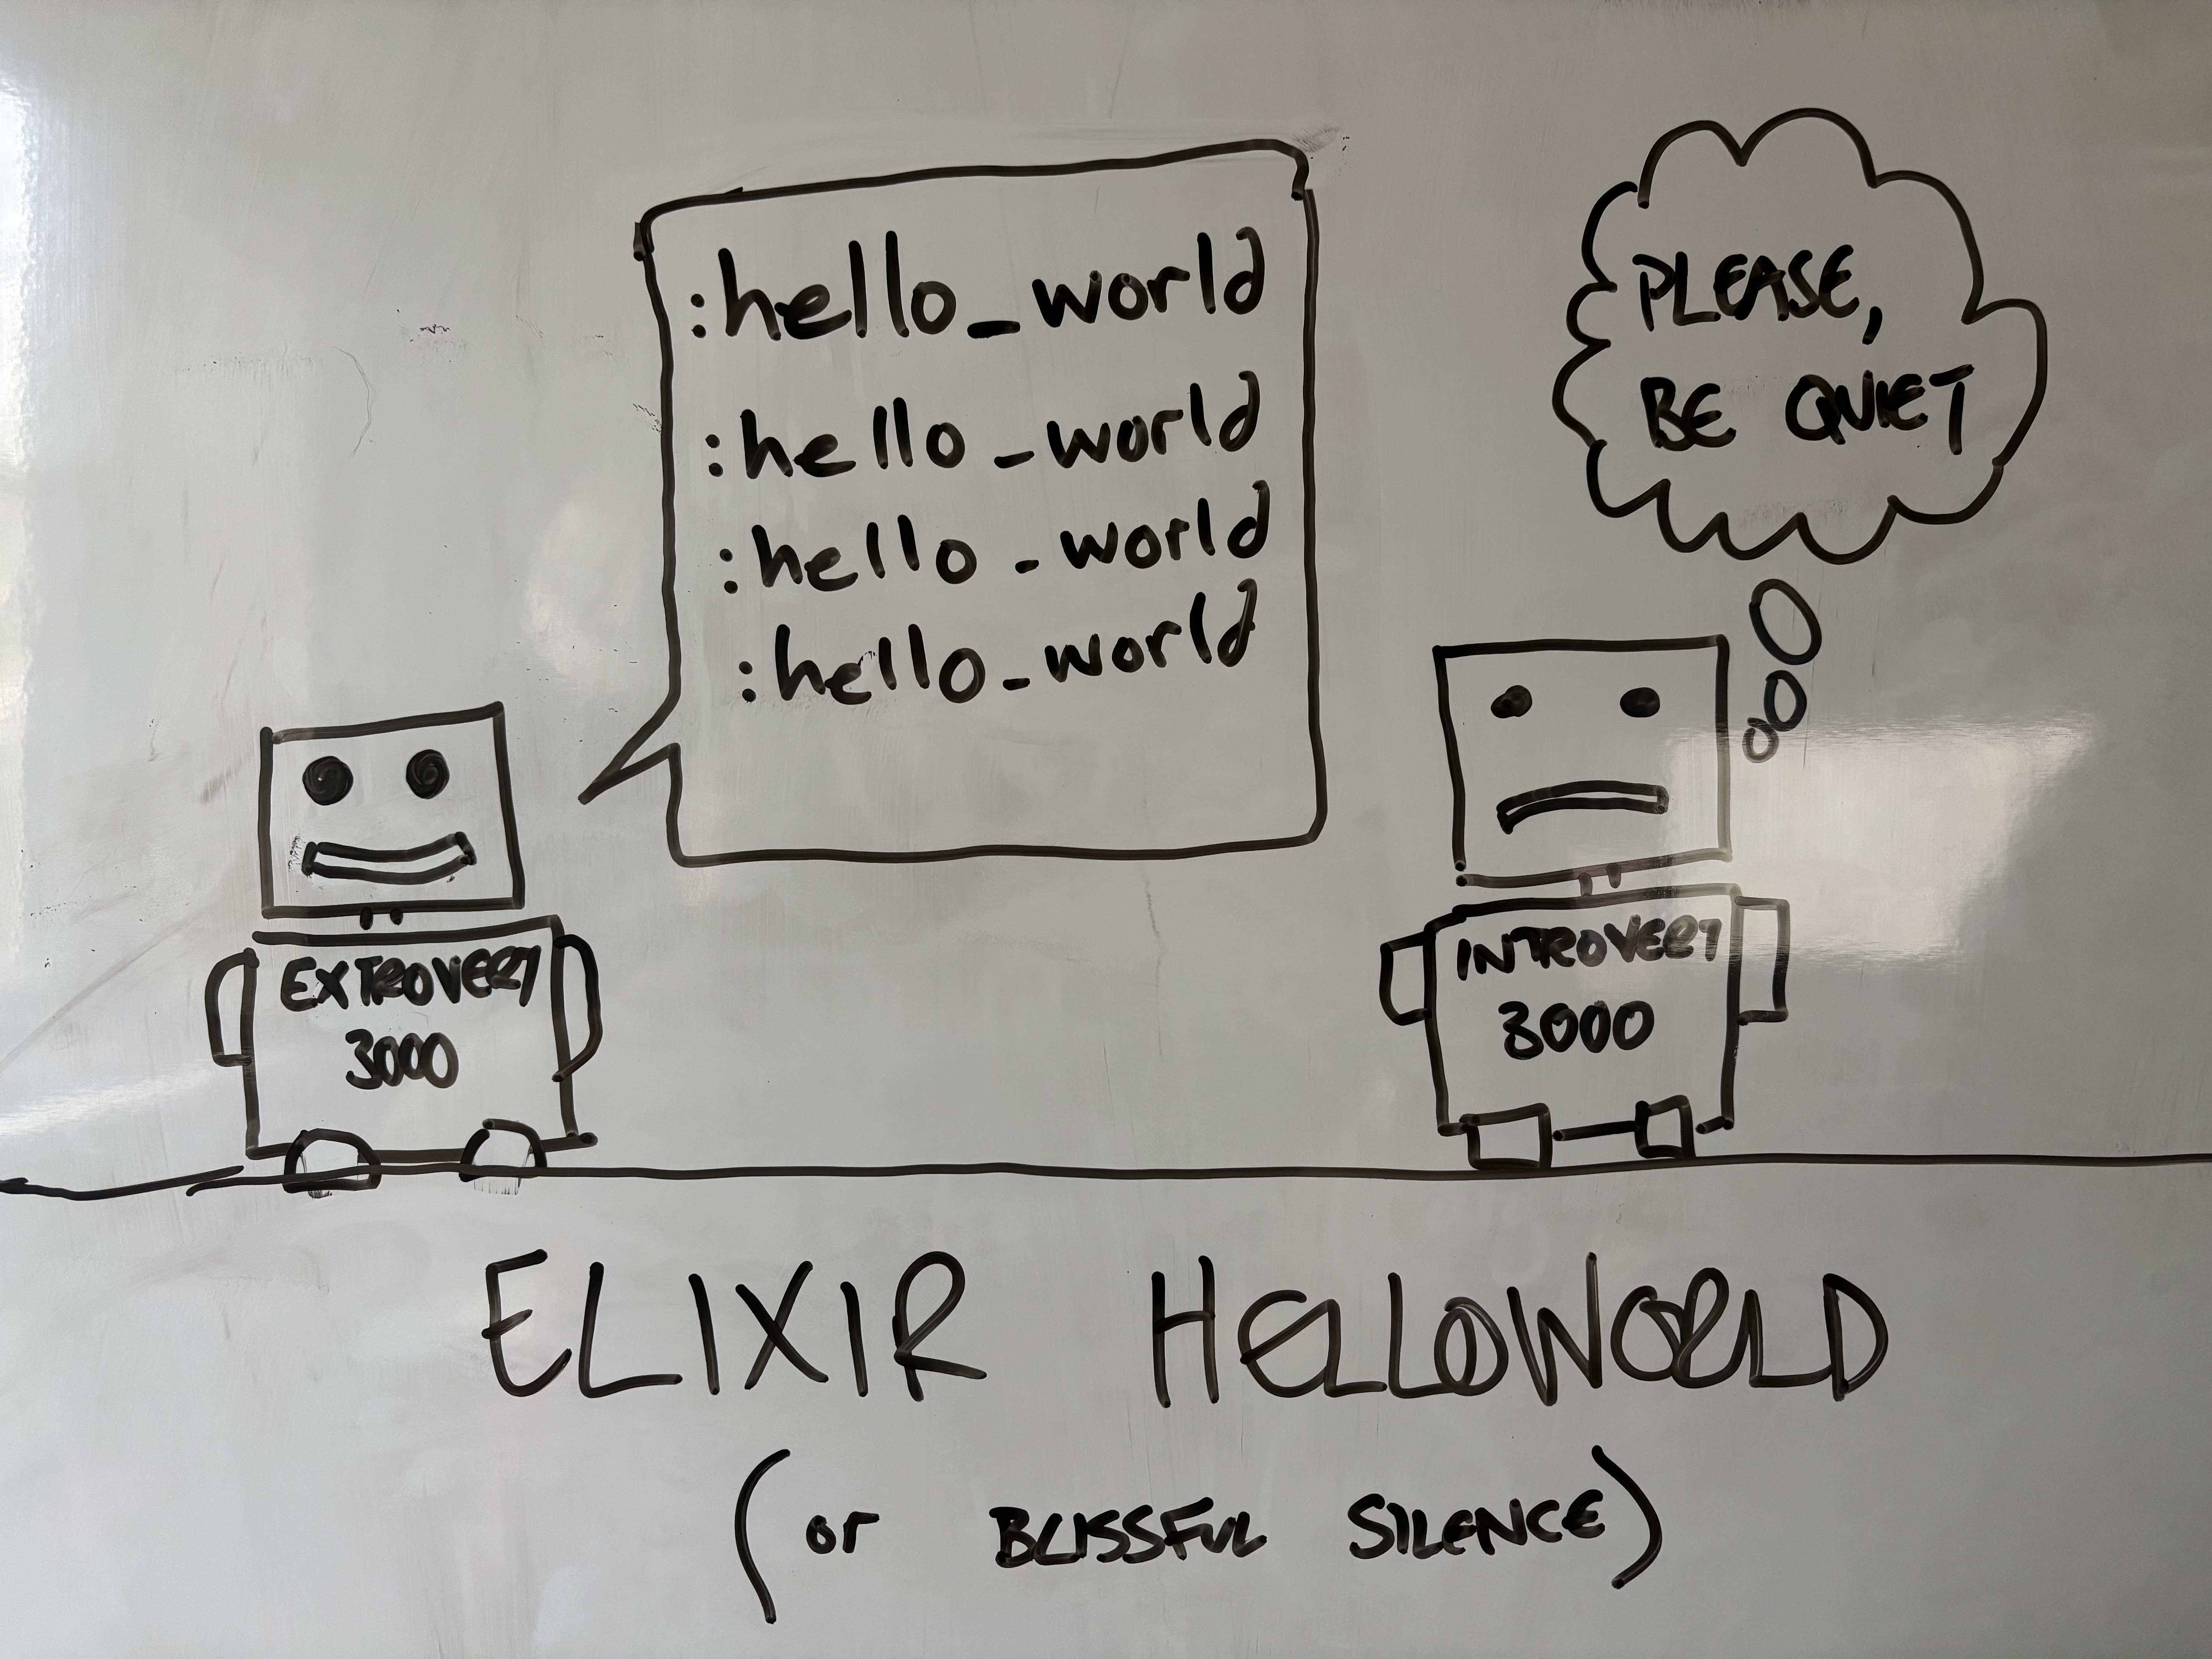 :hello_world
:hello_world
:hello_world
:hello_world
PLEASE,
BE QUIET
EXTROVERT
3000
INTROVERT
3000
ELIXIR HELLOWORLD
(or BLISSFUL SILENCE)